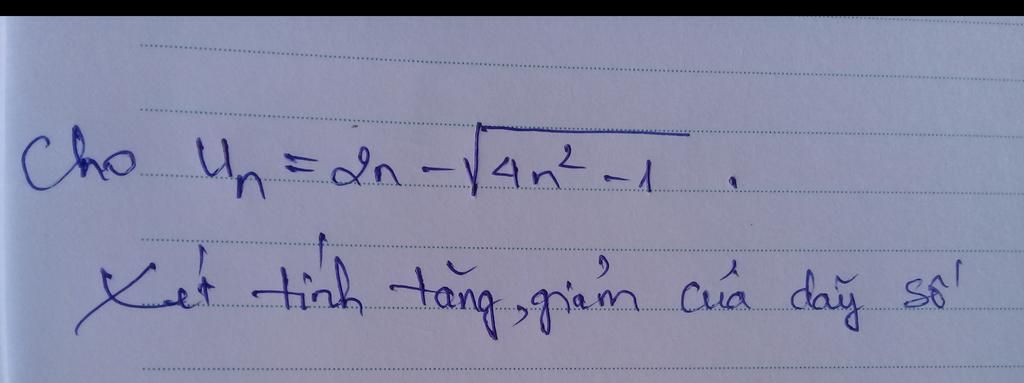 Cho Un = 2n - √(4n² - 1) .
Xét tính tăng, giảm của dãy số